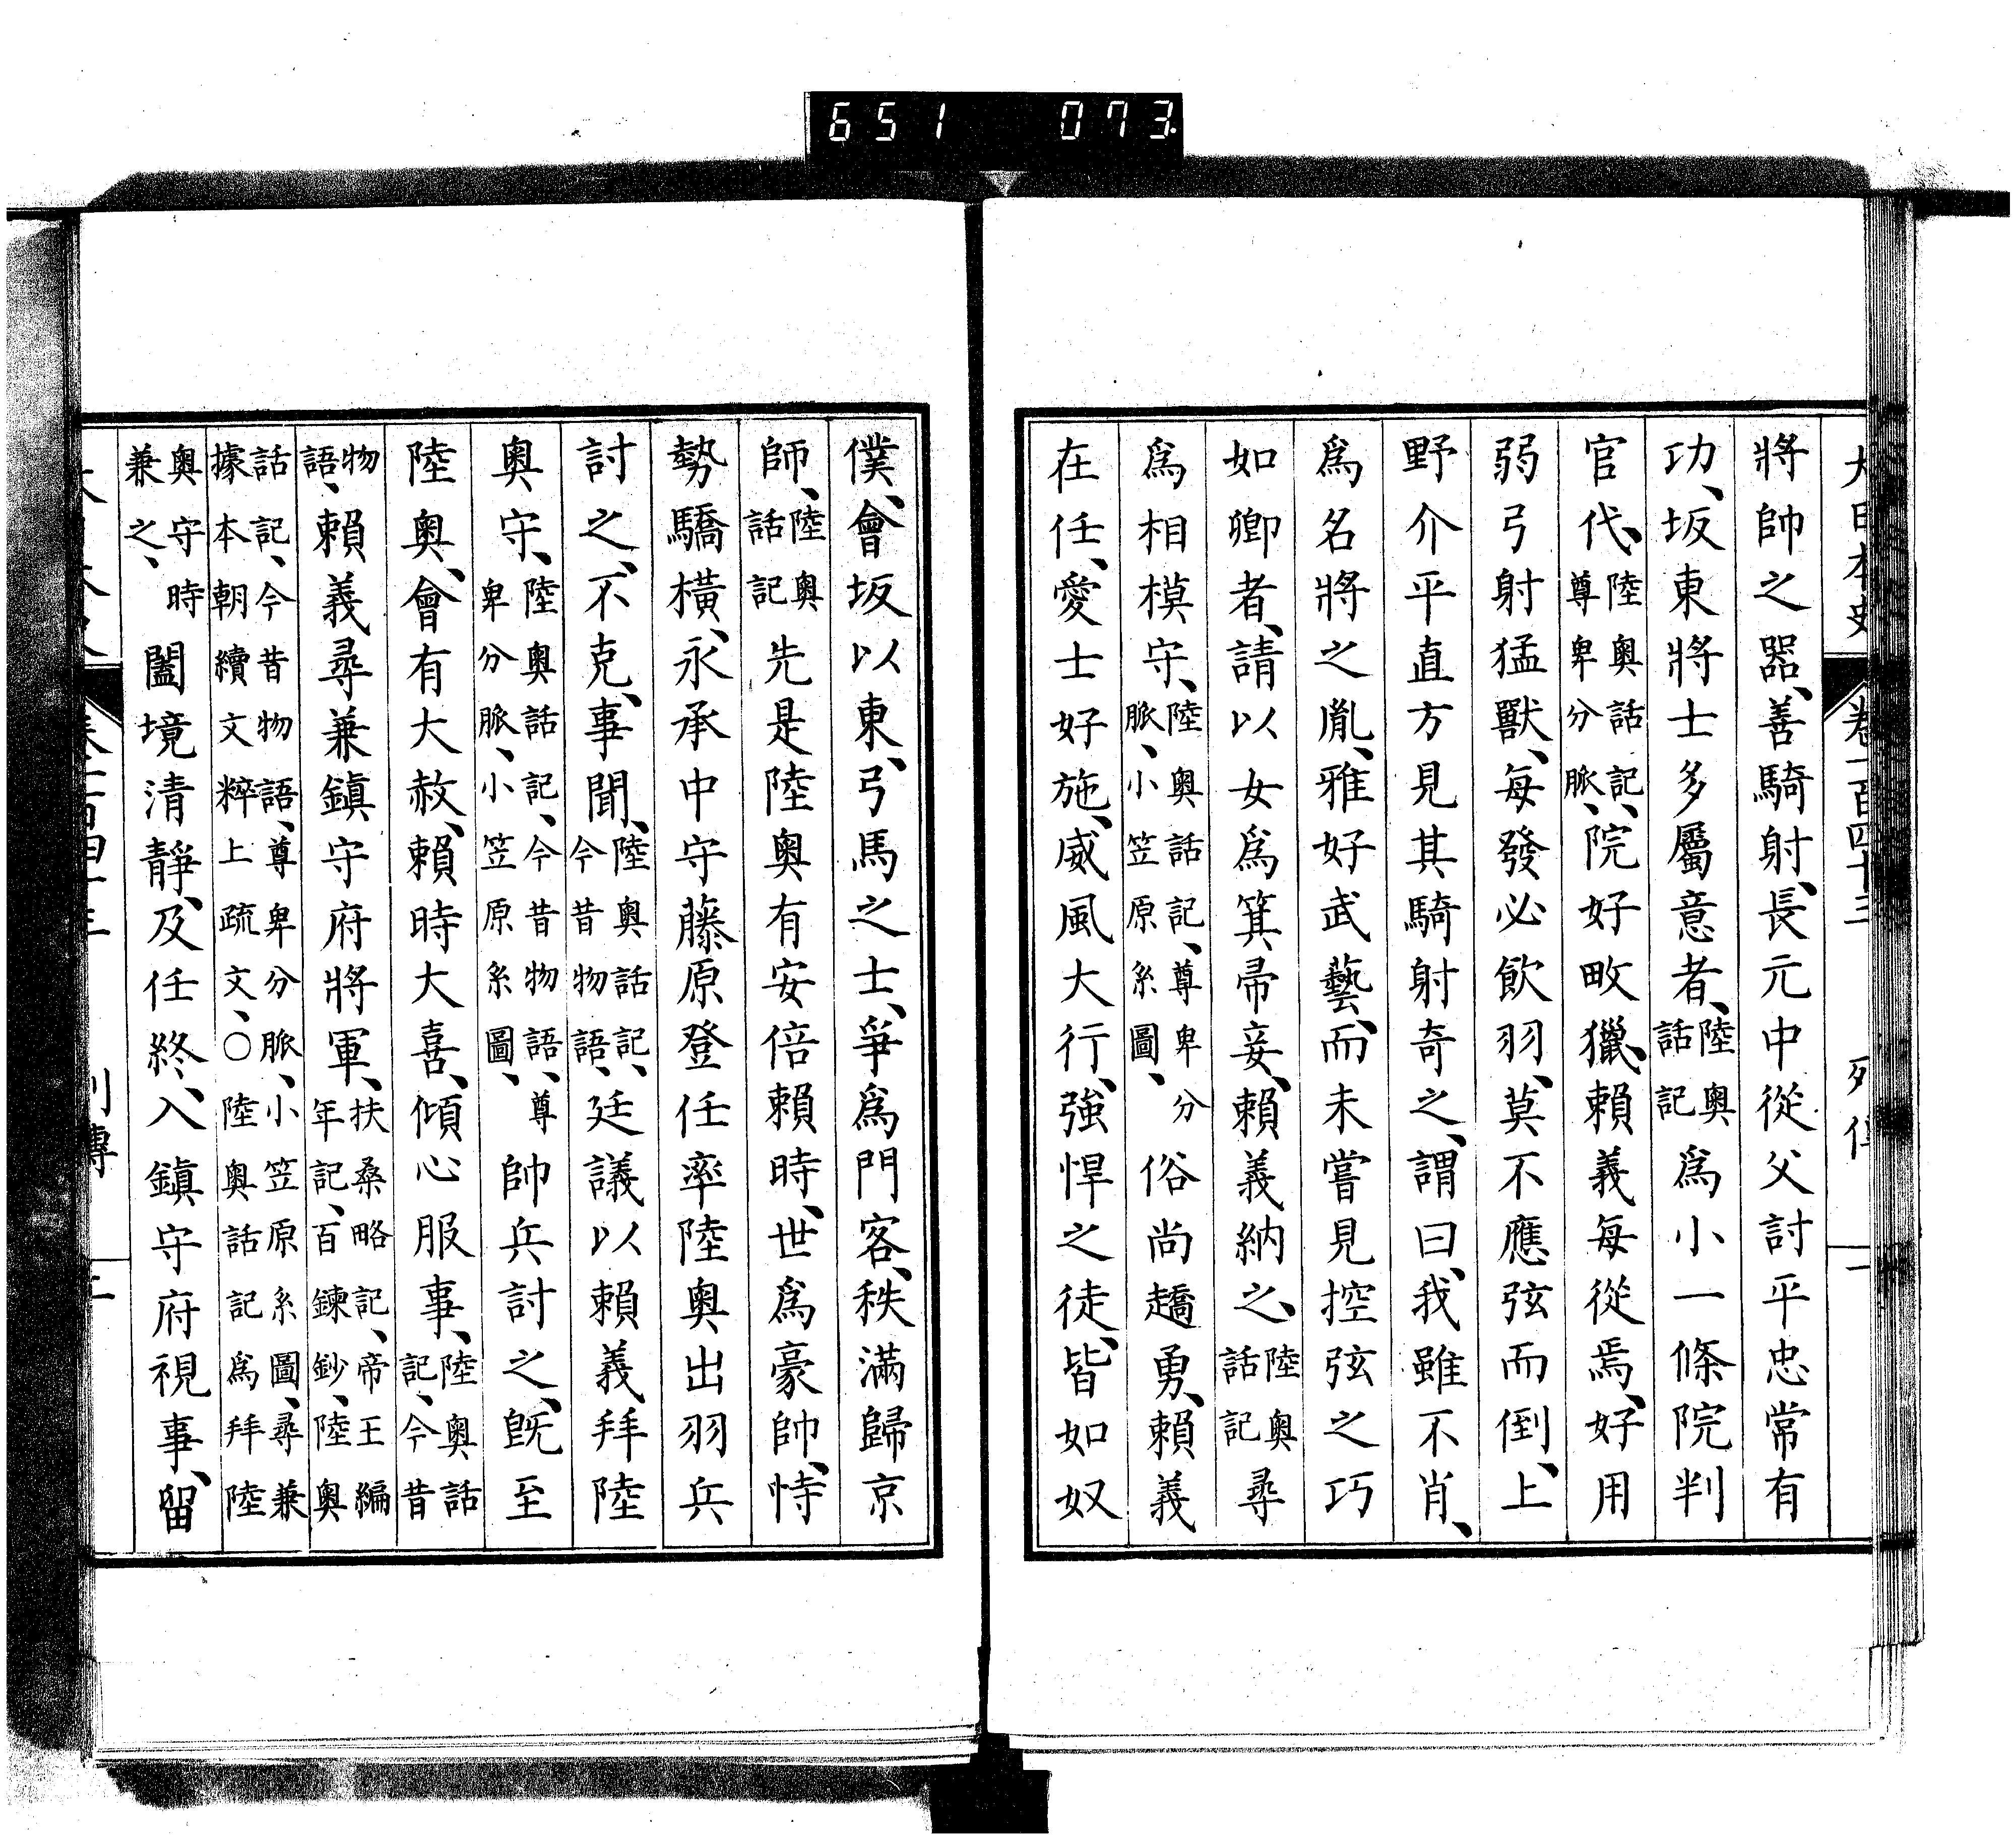 大日本史 卷一百四十三 列傳 一
將帥之器、善騎射、長元中從父討平忠常有
功、坂東將士多屬意者、陸奧話記爲小一條院判
官代、陸奧話記、尊卑分脈、院好畋獵、賴義每從焉、好用
弱弓射猛獸、每發必飲羽、莫不應弦而倒、上
野介平直方見其騎射奇之、謂曰、我雖不肖、
爲名將之胤、雅好武藝、而未嘗見控弦之巧
如卿者、請以女爲箕帚妾、賴義納之、陸奧話記尋
爲相模守、陸奧話記、尊卑分脈、小笠原系圖、俗尚趫勇、賴義
在任、愛士好施、威風大行、強悍之徒、皆如奴
僕、會坂以東、弓馬之士、爭爲門客、秩滿歸京
師、陸奧話記先是陸奧有安倍賴時、世爲豪帥、恃
勢驕橫、永承中守藤原登任率陸奧出羽兵
討之、不克、事聞、陸奧話記、今昔物語、廷議以賴義拜陸
奧守、陸奧話記、今昔物語、尊卑分脈、小笠原系圖、帥兵討之、既至
陸奧、會有大赦、賴時大喜、傾心服事、陸奧話記、今昔
物語、賴義尋兼鎮守府將軍、扶桑略記、帝王編年記、百鍊鈔、陸奧
話記、今昔物語、尊卑分脈、小笠原系圖、尋兼據本朝續文粹上疏文、○陸奧話記爲拜陸
奧守時兼之、闔境清靜、及任終、入鎮守府視事、留
651 073